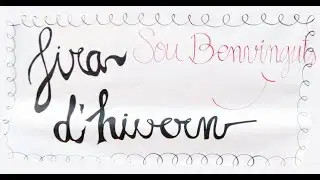 fira
Sou Benvinguts
d'hivern